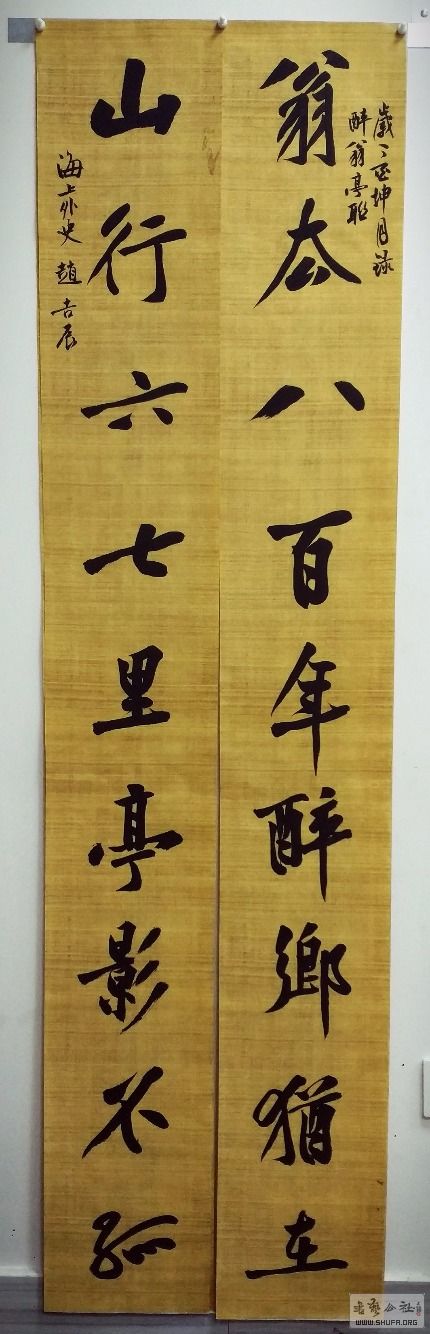 醉翁亭聯
翁去八百年醉鄉猶在
山行六七里亭影不孤
海上外史 趙吉辰
書藝公社
WWW.SHUFA.ORG